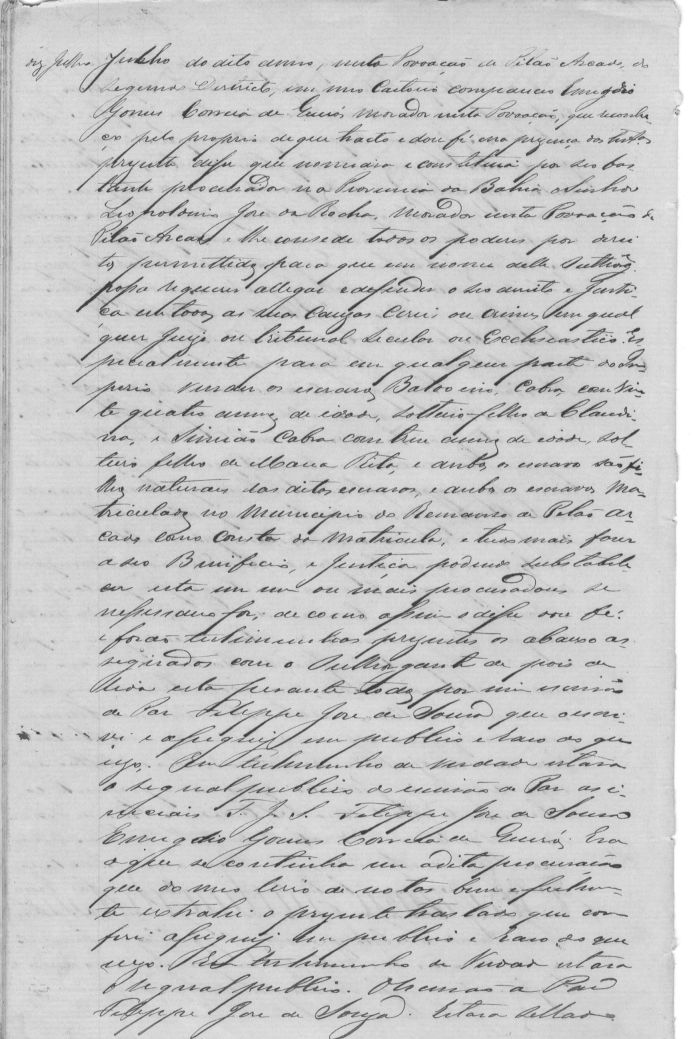 diz Julho
Julho do dito anno, nesta Povoação de Pilão Arcado, do
segundo Districto, em meu Cartorio compareceo Emygdio
Gomes Correia de Queiros morador nesta Povoação, que reconhe
ço pelo proprio de que tracto e dou fé, e na prezença das testas
prezente disse que nomeava e constituia por seo bas
tante procurador na Provincia da Bahia o Senhor
Leopoldino José da Rocha, morador nesta Povoação de
Pilão Arcado e lhe consede todos os poderes por direi
to permittidos para que em nome delle
possa requerer allegar e defender o seo direito e Justi
ça em todas as suas Cauzas Civeis ou crimes em qual
quer Juizo ou tribunal secular ou Ecclesiastico Es
pecialmente para em qualquer parte do Im
perio vender os escravos Baldoino, Cabra com vin
te quatro annos de idade, solteiro filho de Claudi
na, e Simião Cabra com treze annos de idade, sol
teiro filho de Maria Rita, e ambos os escravos são fi
lhos naturais das ditas escravas, e ambos os escravos ma
triculados no Municipio do Remanso de Pilão Ar
cado como consta da Matricula, e tudo mais fazer
a seo Binificio, e Justiça podendo substabele
cer esta em um ou mais procuradores se
nessessario for, de como assim o disse dou fé.
e forão testimunhas prezentes os abaixo as
signados com o de pois de
lida esta perante todos por mim escrivão
de Paz Felippe José de Souza que o escre
vi e assignei em publico e razo do que
uzo. Em testimunho de verdade estava
o signal publico do escrivão de Paz as i
niciais F. J. S. Felippe José de Souza
Emygdio Gomes Correia de Queiros, Era
o que se continha em a dita procuração
que do meo livro de notas bem e fielmen
te extrahi o prezente traslado que con
feri assignei em publico e razo do que
uzo. Em testimunho de Verdade estava
o signal publico. O Escrivão de Paz
Felippe José de Souza. Estava sellado